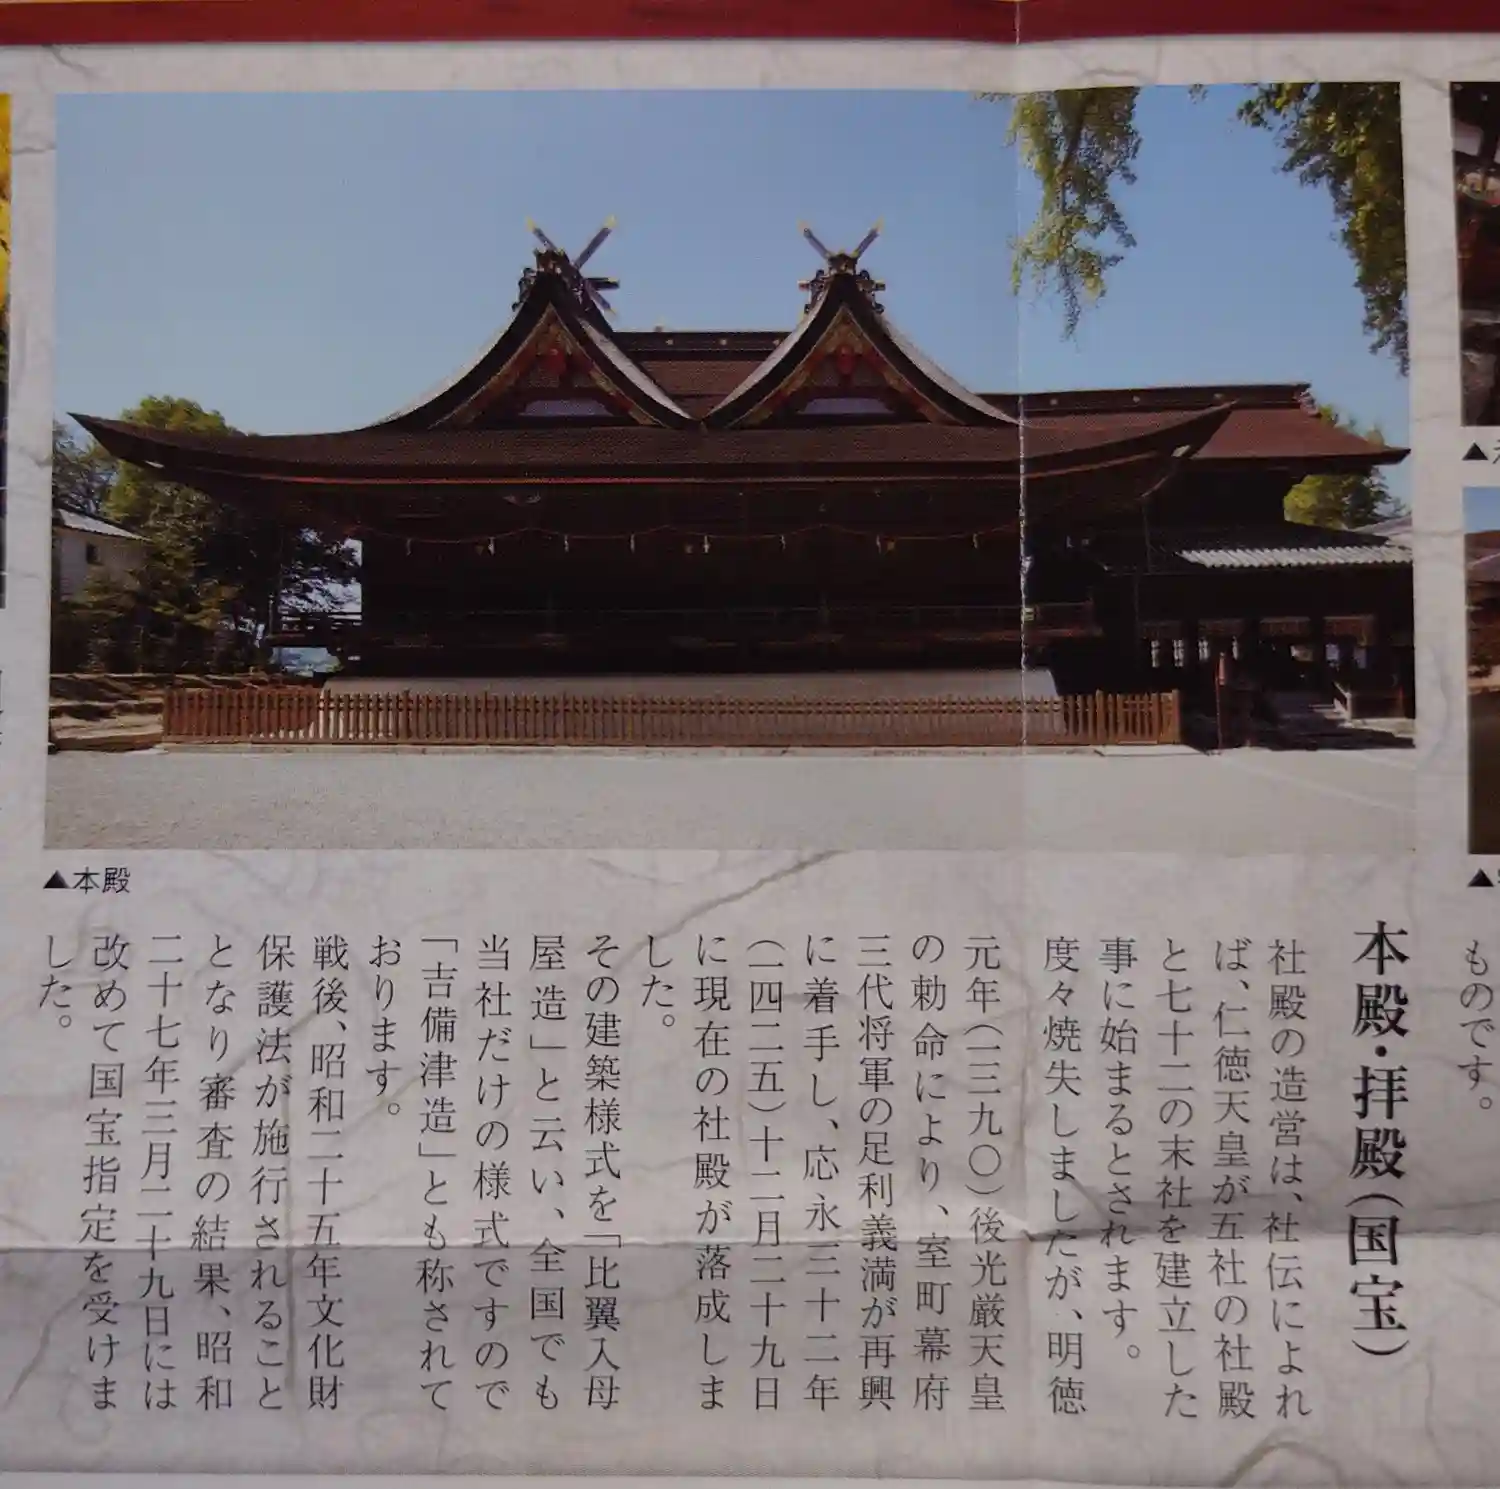 ▲本殿
ものです。
本殿・拝殿（国宝）
社殿の造営は、社伝によれ
ば、仁徳天皇が五社の社殿
と七十二の末社を建立した
事に始まるとされます。
度々焼失しましたが、明徳
元年（一三九〇）後光厳天皇
の勅命により、室町幕府
三代将軍の足利義満が再興
に着手し、応永三十二年
（一四二五）十二月二十九日
に現在の社殿が落成しま
した。
その建築様式を「比翼入母
屋造」と云い、全国でも
当社だけの様式ですので
「吉備津造」とも称されて
おります。
戦後、昭和二十五年文化財
保護法が施行されること
となり審査の結果、昭和
二十七年三月二十九日には
改めて国宝指定を受けま
した。